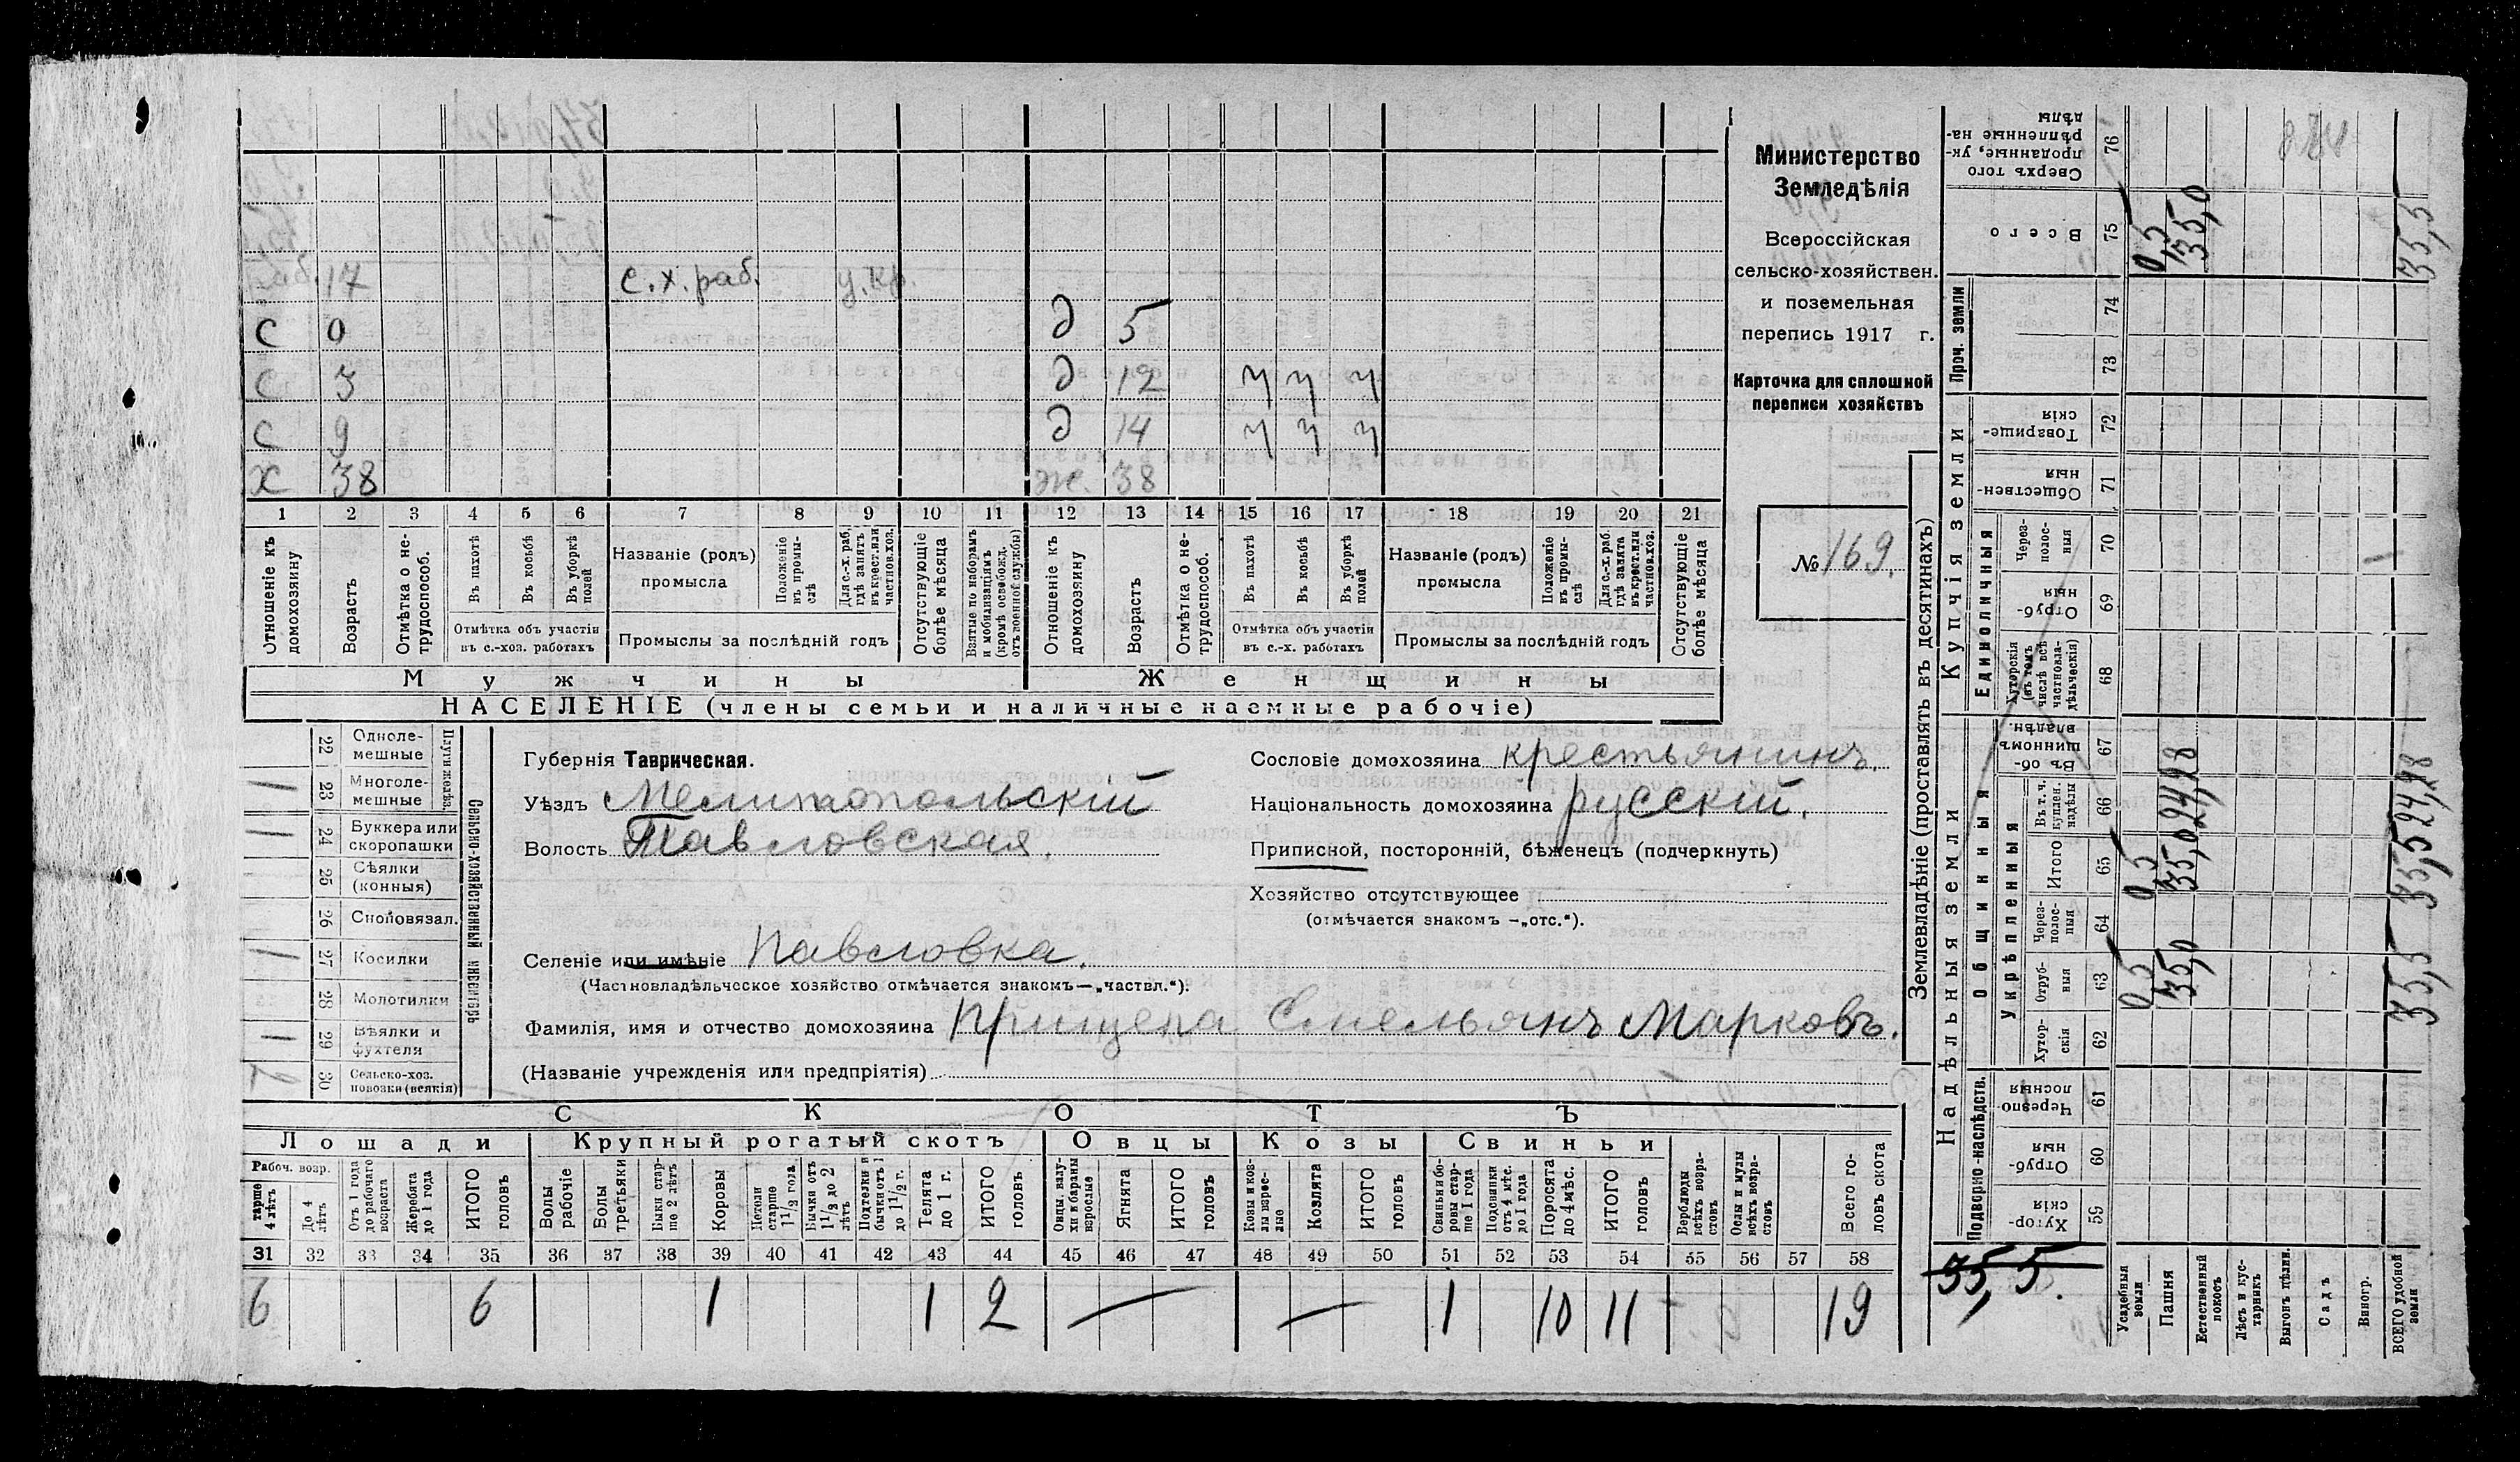 Министерство
Земледѣлія
Всероссійская
сельско-хозяйствен.
и поземельная
перепись 1917 г.
Карточка для сплошной
переписи хозяйствъ
№ 169.
раб. 17 с.х.раб. у.кр.
с 0 д 5
с 3 д 12 ч ч ч
с 9 д 14 ч ч ч
х 38 ж. 38
1 2 3 4 5 6 7 8 9 10 11 12 13 14 15 16 17 18 19 20 21
Отношеніе къ домохозяину
Возрастъ
Отмѣтка о не-трудоспособ.
Въ пахотѣ
Въ косьбѣ
Въ уборкѣ полей
Отмѣтка объ участіи въ с.-хоз. работахъ
Названіе (родъ) промысла
Положеніе въ промы-слѣ
Для с.-х. раб. гдѣ занятъ въ крест. или частнов. хоз.
Промыслы за послѣдній годъ
Отсутствующіе болѣе мѣсяца
Взятые по наборамъ и мобилизаціямъ (кромѣ освобожд. отъ военной службы)
Отношеніе къ домохозяину
Возрастъ
Отмѣтка о не-трудоспособ.
Въ пахотѣ
Въ косьбѣ
Въ уборкѣ полей
Отмѣтка объ участіи въ с.-х. работахъ
Названіе (родъ) промысла
Положеніе въ промы-слѣ
Для с.-х. раб. гдѣ занята въ крест. или частнов. хоз.
Промыслы за послѣдній годъ
Отсутствующіе болѣе мѣсяца
Мужчины Женщины
НАСЕЛЕНІЕ (члены семьи и наличные наемные рабочіе)
Сельско-хозяйственный инвентарь
Плуги желѣз.
22 Одноле-мешные
1 23 Многоле-мешные
1 24 Буккера или скоропашки
25 Сѣялки (конныя)
26 Сноповязал.
1 27 Косилки
28 Молотилки
1 29 Вѣялки и фухтеля
2 30 Сельско-хоз. повозки (всякія)
Губернія Таврическая.
Уѣздъ Мелитопольскій
Волость Павловская.
Сословіе домохозяина крестьянинъ.
Національность домохозяина русскій.
Приписной, посторонній, бѣженецъ (подчеркнуть)
Хозяйство отсутствующее
(отмѣчается знакомъ —„отс.“).
Селеніе или имѣніе Павловка.
(Частновладѣльческое хозяйство отмѣчается знакомъ—„частвл.“).
Фамилія, имя и отчество домохозяина Прищепа Емельянъ Марковъ.
(Названіе учрежденія или предпріятія)
СКОТЪ
Лошади Крупный рогатый скотъ Овцы Козы Свиньи
Рабоч. возр.
тарше 4 лѣтъ
До 4 лѣтъ
Отъ 1 года до рабочаго возраста
Жеребята до 1 года
ИТОГО головъ
Волы рабочіе
Волы третьяки
Быки стар-ше 2 лѣтъ
Коровы
Нетели старше 1 1/2 года
Бычки отъ 1 1/2 до 2 лѣтъ
Подтелки и бычки отъ 1 до 1 1/2 г.
Телята до 1 г.
ИТОГО головъ
Овцы, валу-хи и бараны взрослые
Ягнята
ИТОГО головъ
Козы и коз-лы взрос-лые
Козлята
ИТОГО головъ
Свиньи и бо-ровы стар-ше 1 года
Подсвинки отъ 4 мѣс. до 1 года
Поросята до 4 мѣс.
ИТОГО головъ
Верблюды всѣхъ возра-стовъ
Ослы и мулы всѣхъ возра-стовъ
Всего го-ловъ скота
31 32 33 34 35 36 37 38 39 40 41 42 43 44 45 46 47 48 49 50 51 52 53 54 55 56 57 58
6 6 1 1 2 — — 1 10 11 19
Землевладѣніе (проставлять въ десятинахъ)
Надѣльныя земли Купчія земли Проч. земли
Подворно-наслѣдств. Общинныя Укрѣпленныя Единоличныя
Хутор-скія 59
Отруб-ныя 60
Черезпо-лосныя 61
Хутор-скія 62
Отруб-ныя 63
Через-полос-ныя 64
Итого 65
Въ т. ч. куплен. надѣлы 66
Въ об-щинномъ владѣн. 67
Хуторскія (въ томъ числѣ всѣ частновла-дѣльческія) 68
Отруб-ныя 69
Через-полос-ныя 70
Обществен-ныя 71
Товарище-скія 72
73
74
Всего 75
Сверхъ того проданные, ук-рѣпленные на-дѣлы 76
35,5.
Усадебныя земли 0,5 0,5 0,5
Пашня 35,0 35,0 24,98 35,0
Естественный покосъ
Лѣсъ и кус-тарникъ
Выгонъ цѣлин.
Садъ
Виногр.
ВСЕГО удобной земли 35,5 35,5 24,98 35,5